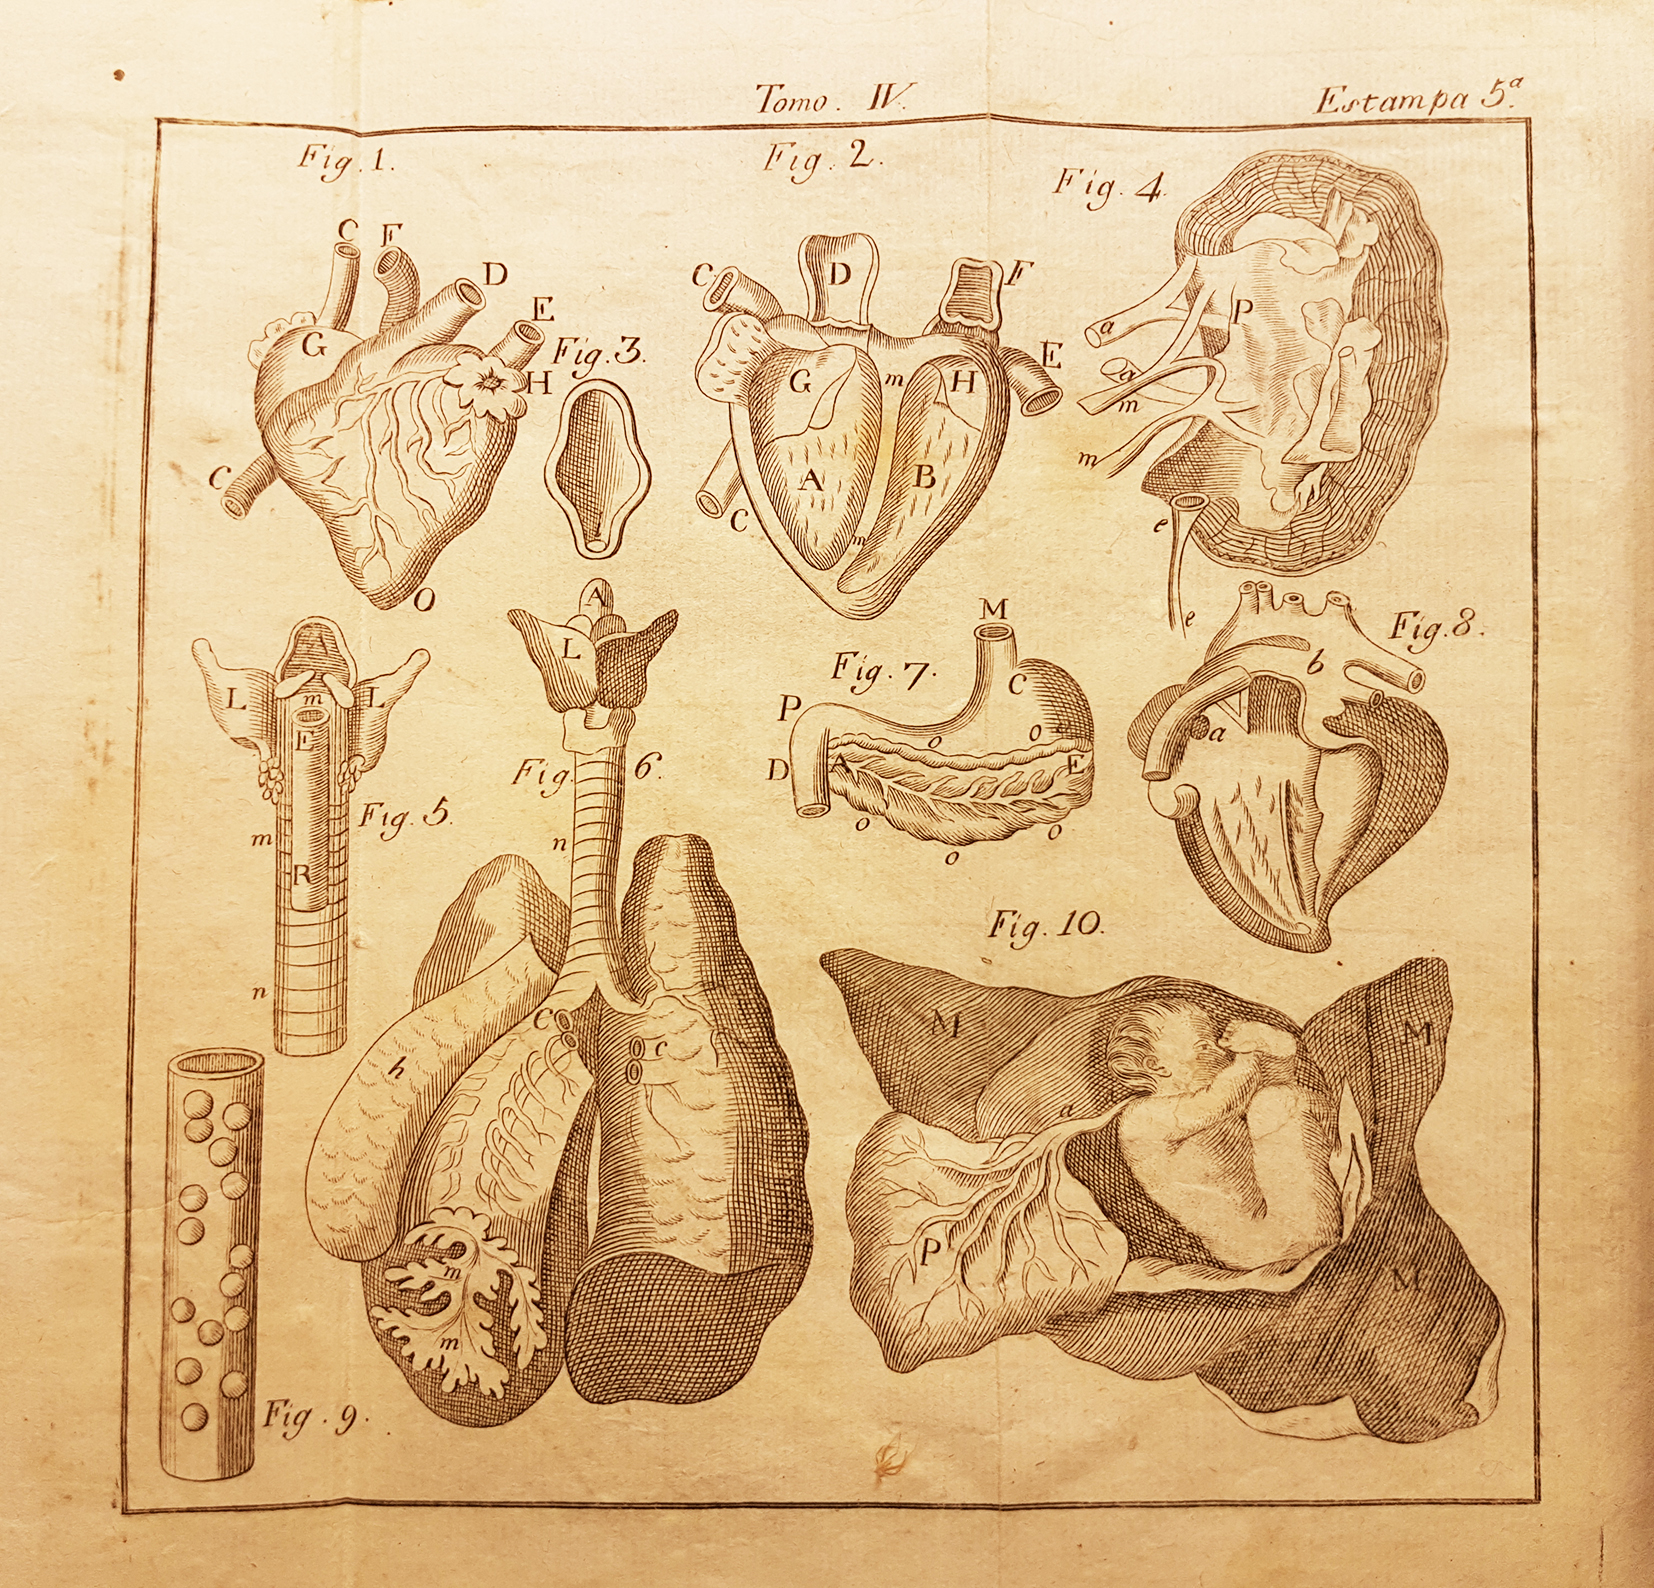 Tomo. IV.
Estampa 5.ª
Fig. 1.
C F
D
E
G
H
C
O
Fig. 2.
C D F
E
G m H
A B
C m
Fig. 3.
Fig. 4.
P
a
a
m
m
e
e
Fig. 5.
A
L m L
E
m
R
n
Fig. 6.
A
L
n
C c
h
m
m
Fig. 7.
M
C
P
o o
D A E
o o
o
Fig. 8.
b
a
Fig. 9.
Fig. 10.
M M
a
P
M